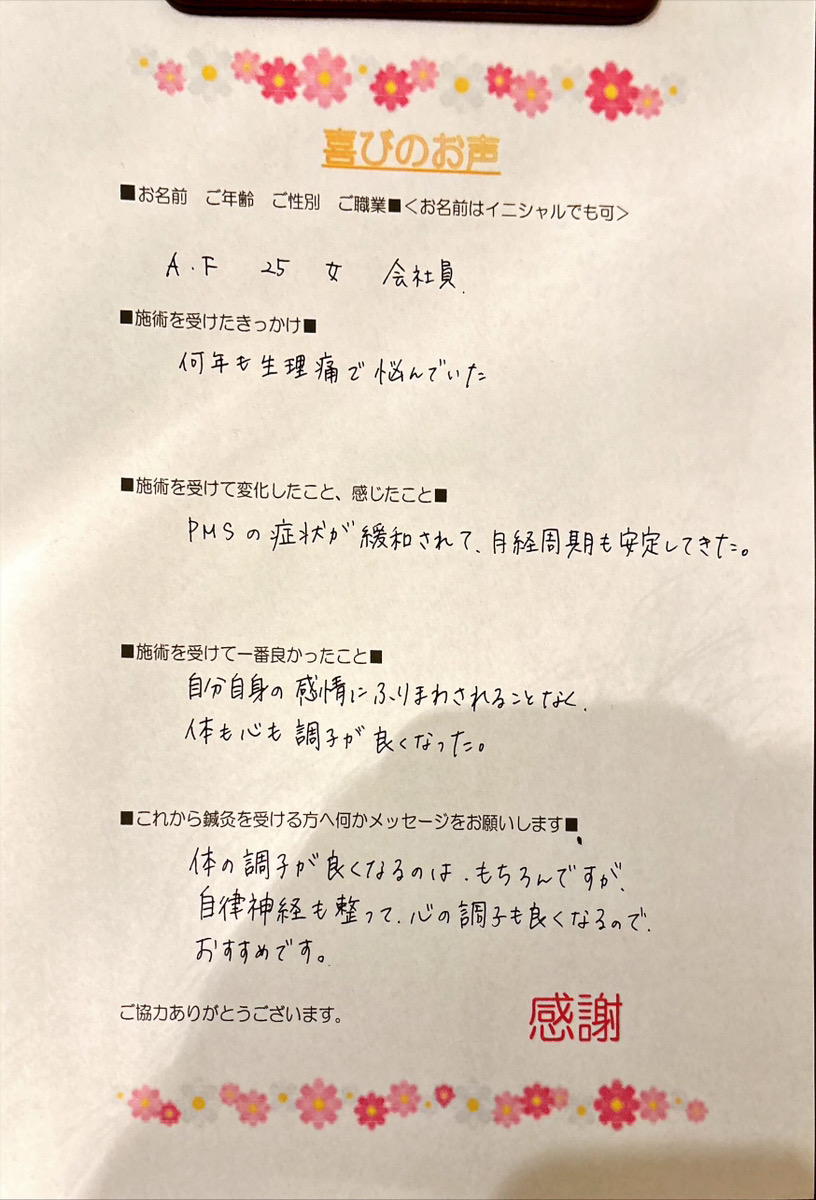 喜びのお声
■お名前　ご年齢　ご性別　ご職業■＜お名前はイニシャルでも可＞
A.F　25　女　会社員.
■施術を受けたきっかけ■
何年も生理痛で悩んでいた
■施術を受けて変化したこと、感じたこと■
PMSの症状が緩和されて、月経周期も安定してきた。
■施術を受けて一番良かったこと■
自分自身の感情にふりまわされることなく、
体も心も調子が良くなった。
■これから鍼灸を受ける方へ何かメッセージをお願いします■
体の調子が良くなるのは、もちろんですが、
自律神経も整って、心の調子も良くなるので、
おすすめです。
ご協力ありがとうございます。
感謝